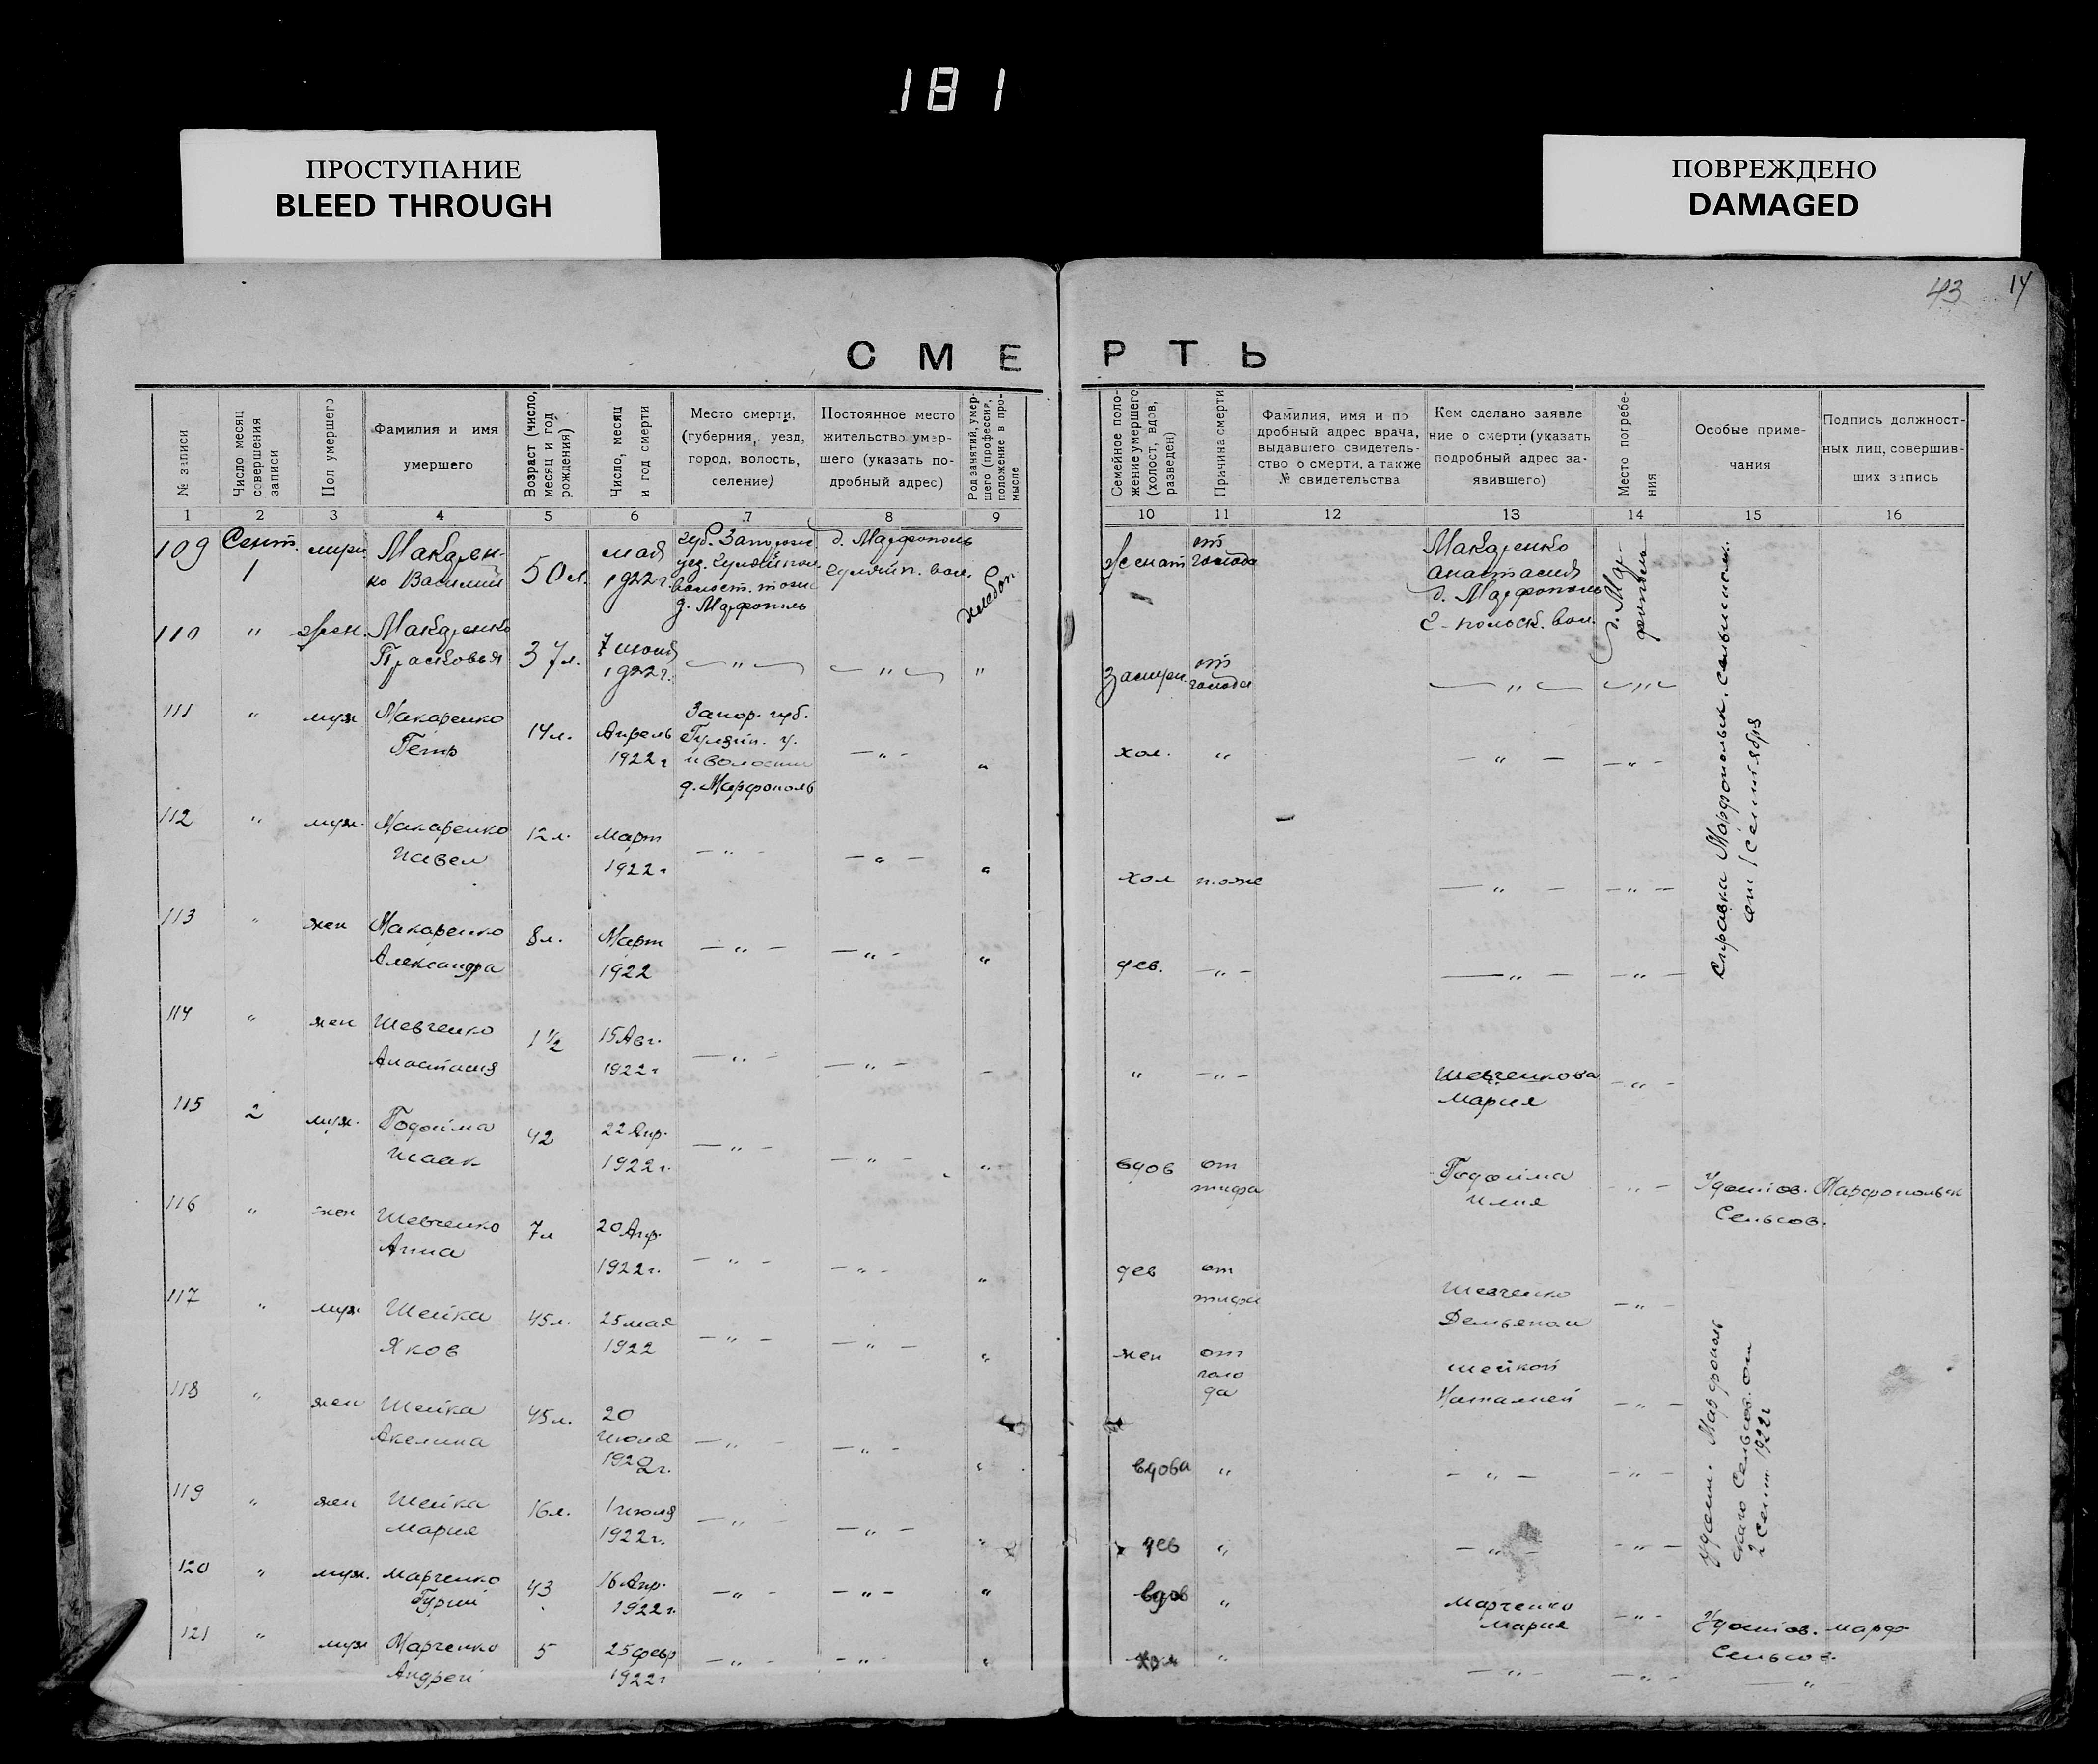 181
ПРОСТУПАНИЕ
BLEED THROUGH
ПОВРЕЖДЕНО
DAMAGED
43 14
СМЕРТЬ
№ записи
Число месяц
совершения
записи
Пол умершего
Фамилия и имя
умершего
Возраст (число,
месяц и год
рождения)
Число, месяц
и год смерти
Место смерти,
(губерния, уезд,
город, волость,
селение)
Постоянное место
жительство умер-
шего (указать по-
дробный адрес)
Род занятий, умер-
шего (профессия,
положение в про-
мысле
Семейное поло-
жение умершего
(холост, вдов,
разведен)
Причина смерти
Фамилия, имя и по
дробный адрес врача,
выдавшего свидетель-
ство о смерти, а также
№ свидетельства
Кем сделано заявле
ние о смерти (указать
подробный адрес за-
явившего)
Место погребе-
ния
Особые приме-
чания
Подпись должност-
ных лиц, совершив-
ших запись
1 2 3 4 5 6 7 8 9 10 11 12 13 14 15 16
109
Сент.
1
Макарен-
ко Василий
50 л.
мая
1922 г.
губ. Запорож.
д. Марфополь
д. Марфополь
женат
от
голода
Макаренко
Анастасия
д. Марфополь
д. Мар-
фополь
110 " жен.
Макаренко
Прасковья
37 л.
7 июня
1922 г.
— " —
— " —
"
замуж.
от
голода
— " —
— " —
111 " муж
Макаренко
Петр
14 л.
Апрель
1922 г
Запор. губ.
Гуляйп. у.
и волости
д. Марфополь
— " —
"
хол.
"
— " —
— " —
112 " муж.
Макаренко
Павел
12 л.
Март
1922 г
— " —
— " —
"
хол
тоже
— " —
— " —
113 " жен
Макаренко
Александра
8 л.
Март
1922
— " —
— " —
"
дев.
— " —
— " —
— " —
Справка Марфопольск. сельисполк.
от 1 сентября
114 " жен
Шевченко
Анастасия
1 1/2
15 Авг.
1922 г
— " —
— " —
—
"
— " —
Шевченкова
Мария
— " —
115 2 муж.
Годойма
Исаак
42
22 Апр.
1922 г.
— " —
— " —
"
вдов
от
тифа
Годойма
Илия
— " —
Удостов. Марфопольск
Сельсов.
116 " жен
Шевченко
Анна
7 л
20 Апр.
1922 г.
— " —
— " —
"
дев
от
тифа
Шевченко
Демьяном
— " —
117 " муж
Шейка
Яков
45 л.
25 мая
1922
— " —
— " —
"
жен
от
голо
да
Шейкой
Наталией
— " —
118 " жен
Шейка
Акелина
45 л.
20
июля
1922 г.
— " —
— " —
"
вдова
"
— " —
— " —
119 " жен
Шейка
Мария
16 л.
1 июля
1922 г.
— " —
— " —
"
дев
"
— " —
— " —
Удост. Марфополь
скаго Сельсов. от
2 Сент. 1922 г
120 " муж.
Марченко
Гурий
43
16 Апр.
1922 г.
— " —
— " —
"
вдов
"
Марченко
Мария
— " —
Удостов. Марф
Сельсов.
121 " муж
Марченко
Андрей
5
25 февр
1922 г
— " —
— " —
"
хол
"
— " —
— " —
— " —